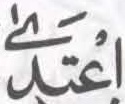 اعْتَدَىٰ